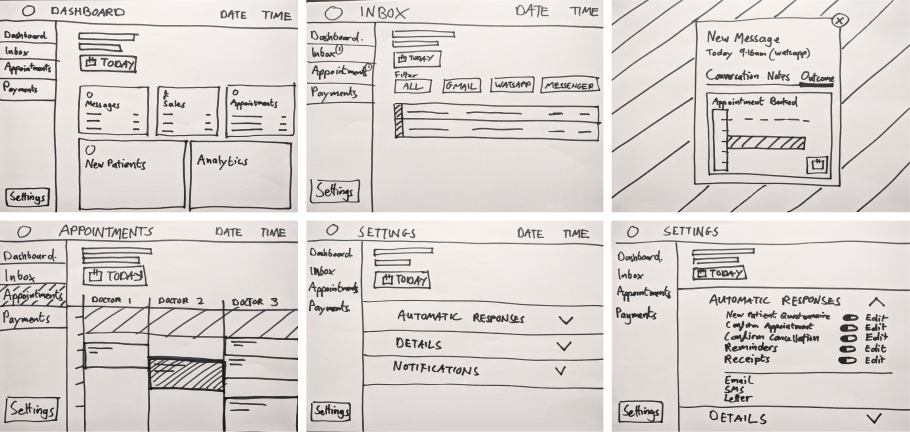 DASHBOARD DATE TIME
Dashboard
Inbox
Appointments
Payments
TODAY
Messages
£
Sales
Appointments
New Patients
Analytics
Settings
INBOX DATE TIME
Dashboard.
Inbox
Appointments
Payments
TODAY
Filter
ALL GMAIL WATSAPP MESSENGER
Settings
New Message
Today 9:16am (watsapp)
Conversation Notes Outcome
Appointment Booked
APPOINTMENTS DATE TIME
Dashboard.
Inbox
Appointments
Payments
TODAY
DOCTOR 1 DOCTOR 2 DOCTOR 3
Settings
SETTINGS DATE TIME
Dashboard
Inbox
Appointments
Payments
TODAY
AUTOMATIC RESPONSES
DETAILS
NOTIFICATIONS
Settings
SETTINGS DATE TIME
Dashboard.
Inbox
Appointments
Payments
TODAY
AUTOMATIC RESPONSES
New Patient Questionnaire Edit
Confirm Appointment Edit
Confirm Cancellation Edit
Reminders Edit
Receipts Edit
Email
SMS
Letter
DETAILS
Settings